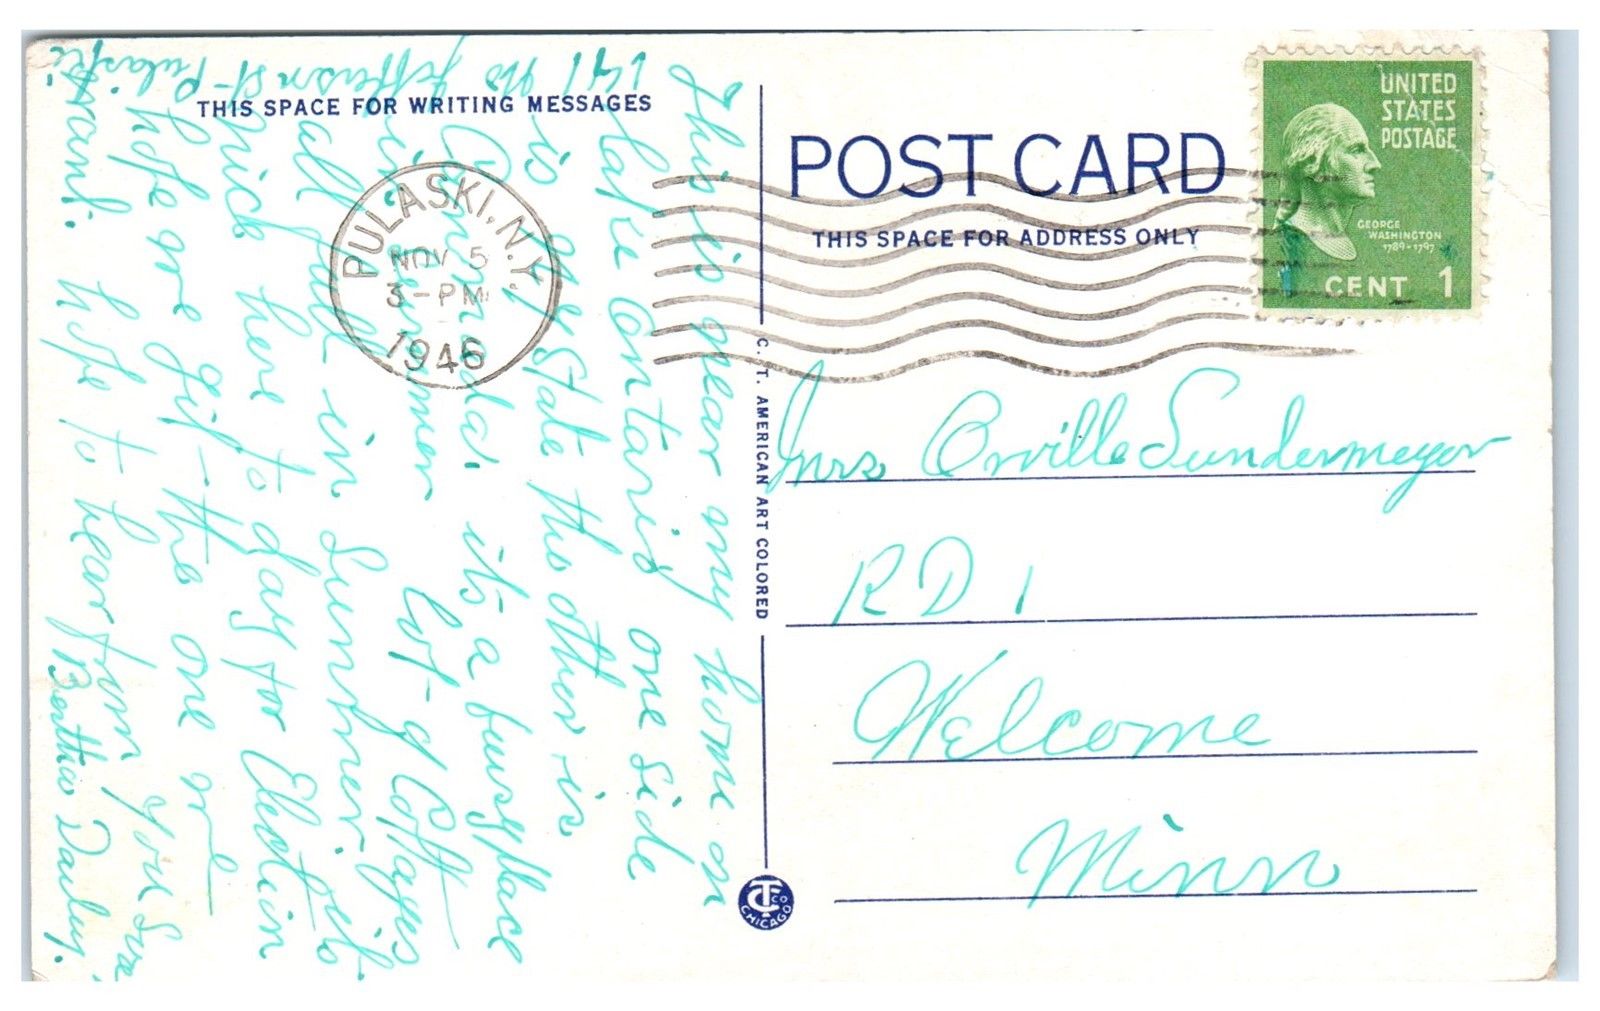 THIS SPACE FOR WRITING MESSAGES
This is near my home on
Lake Ontario one side
is N.Y. State the other is
Canada. it's a busy place
in summer lot-of Cottages
all full in Summer. its
nice here to day for Election
hope we git-the one we
want. hope to hear from you Sure
Bertha
141 No Jefferson St-Pulaski
PULASKI, N.Y.
NOV 5
3-PM
1946
POST CARD
THIS SPACE FOR ADDRESS ONLY
UNITED
STATES
POSTAGE
GEORGE
WASHINGTON
1789-1797
CENT 1
C. T. AMERICAN ART COLORED
CT CO
CHICAGO
Mrs Orville Sundermeyer
R D 1
Welcome
Minn